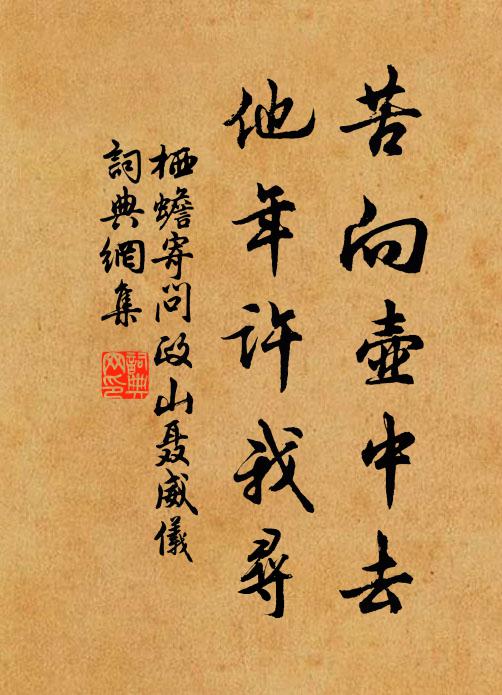 苦向壺中去
他年許我尋
栖蟾寄問政山聶威儀
詞典網集
詞典
网印